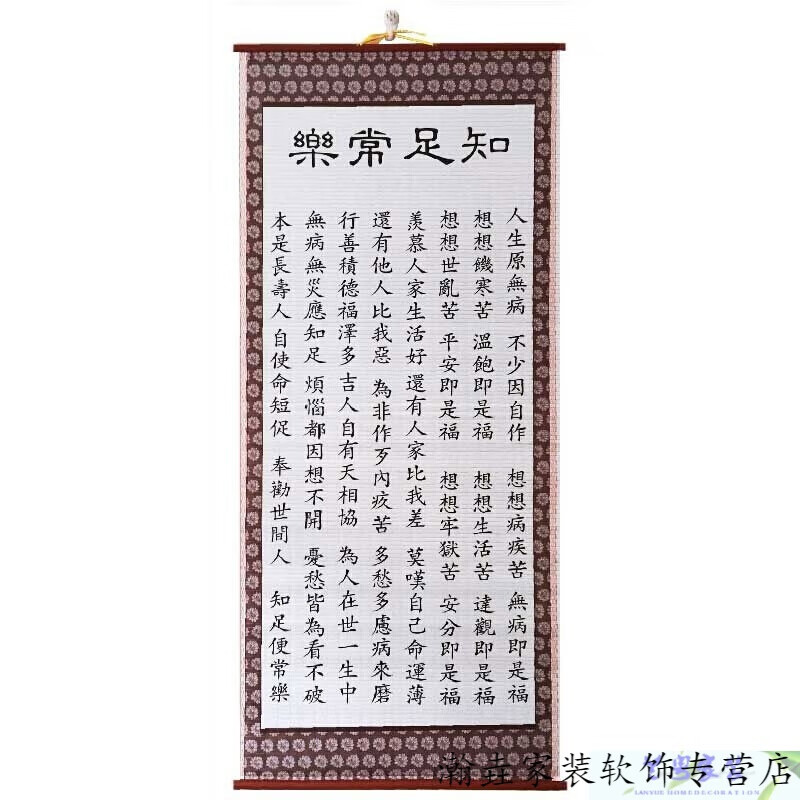 知足常樂
人生原無病 不少因自作 想想病疾苦 無病即是福
想想饑寒苦 溫飽即是福 想想生活苦 達觀即是福
想想世亂苦 平安即是福 想想牢獄苦 安分即是福
羨慕人家生活好 還有人家比我差 莫嘆自己命運薄
還有他人比我惡 為非作歹內疚苦 多愁多慮病來磨
行善積德福澤多 吉人自有天相協 為人在世一生中
無病無災應知足 煩惱都因想不開 憂愁皆為看不破
本是長壽人 自使命短促 奉勸世間人 知足便常樂
瀚垚家装软饰专营店
LANYUE HOMEDECORATION